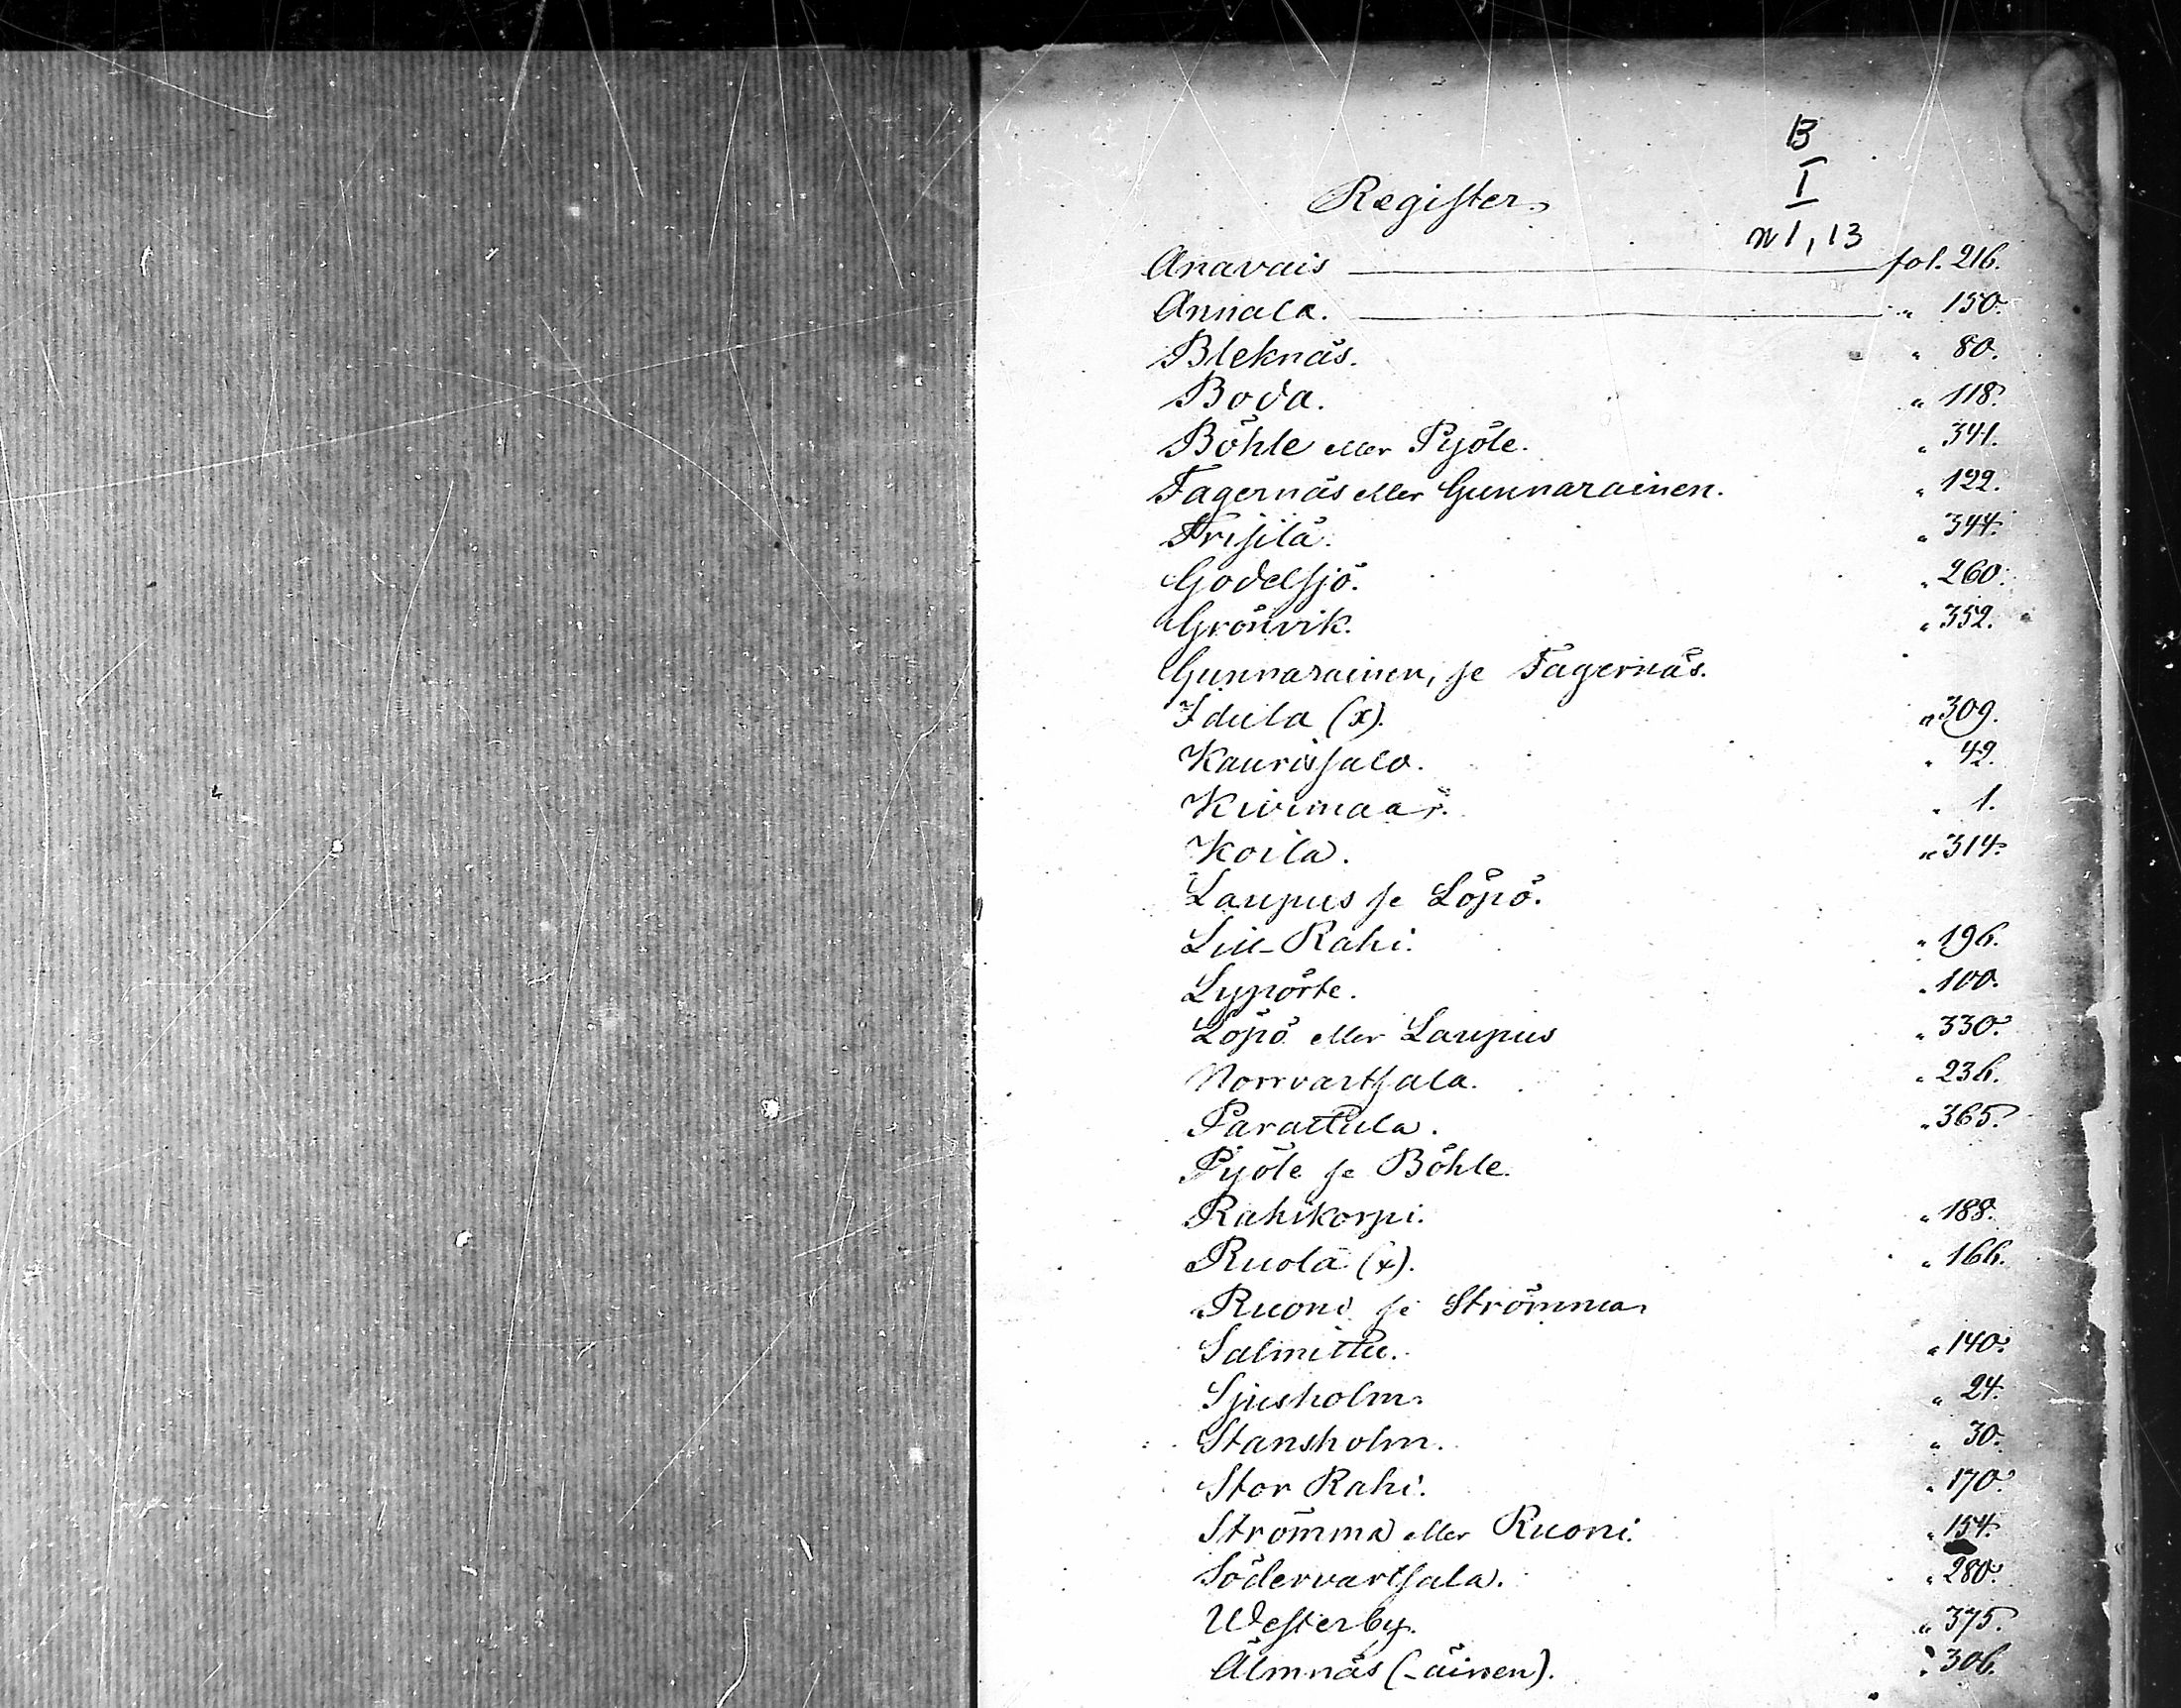 B
I
n 1, 13
Register
Anavais fol. 216.
Annala. " 150.
Bleknäs. " 80.
Boda. " 118.
Böhle eller Pyöle. " 341.
Fagernäs eller Gunnarainen. " 122.
Frisilä. " 344.
Godelsjö. " 260.
Grönvik. " 352.
Gunnarainen, se Fagernäs.
Idula (x). " 309.
Kaurissalo. " 42.
Kivimaa " 1.
Koila. " 314.
Laupus se Löpö.
Lill-Rahi. " 196.
Lypörte. " 100.
Löpö eller Laupus " 330.
Norrvartsala. " 236.
Parattula. " 365.
Pyöle se Böhle.
Rahikorpi. " 188.
Ruola (x). " 166.
Ruoni se Strömma
Salmittu. " 140.
Sjusholm. " 24.
Stansholm. " 30.
Stor Rahi. " 170.
Strömma eller Ruoni. " 154.
Södervartsala. " 280.
Westerby. " 375.
Älmnäs (-äinen). " 306.